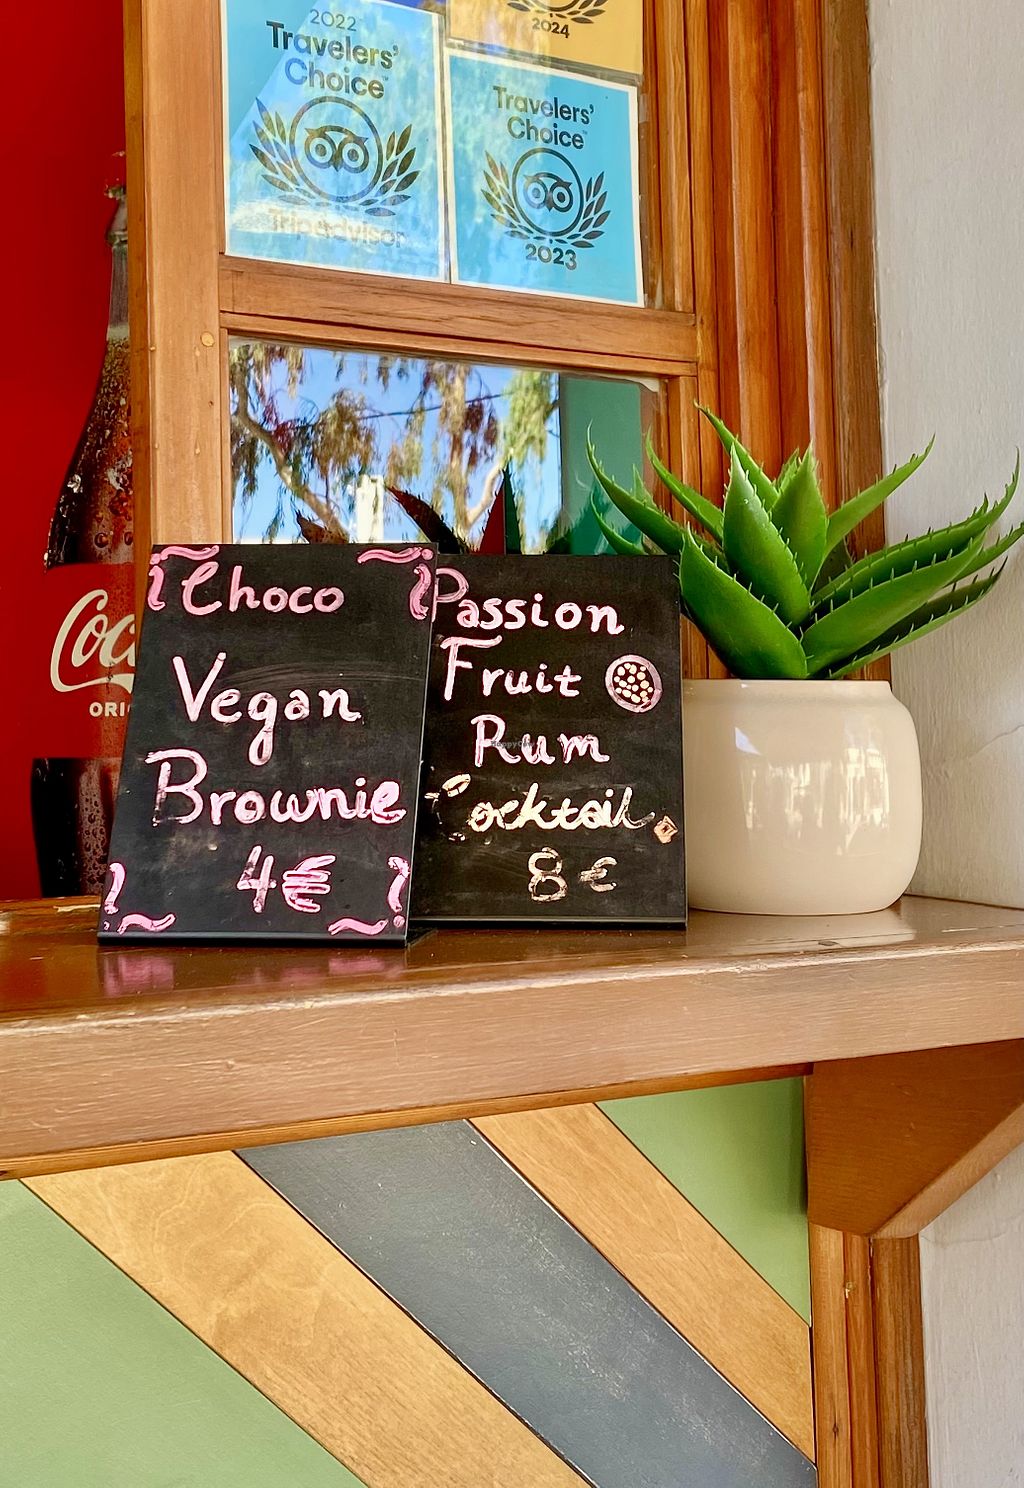 2022
Travelers'
Choice
Tripadvisor
2024
Travelers'
Choice
2023
Coca
ORI
Choco
Vegan
Brownie
4€
Passion
Fruit
Rum
Cocktail
8€